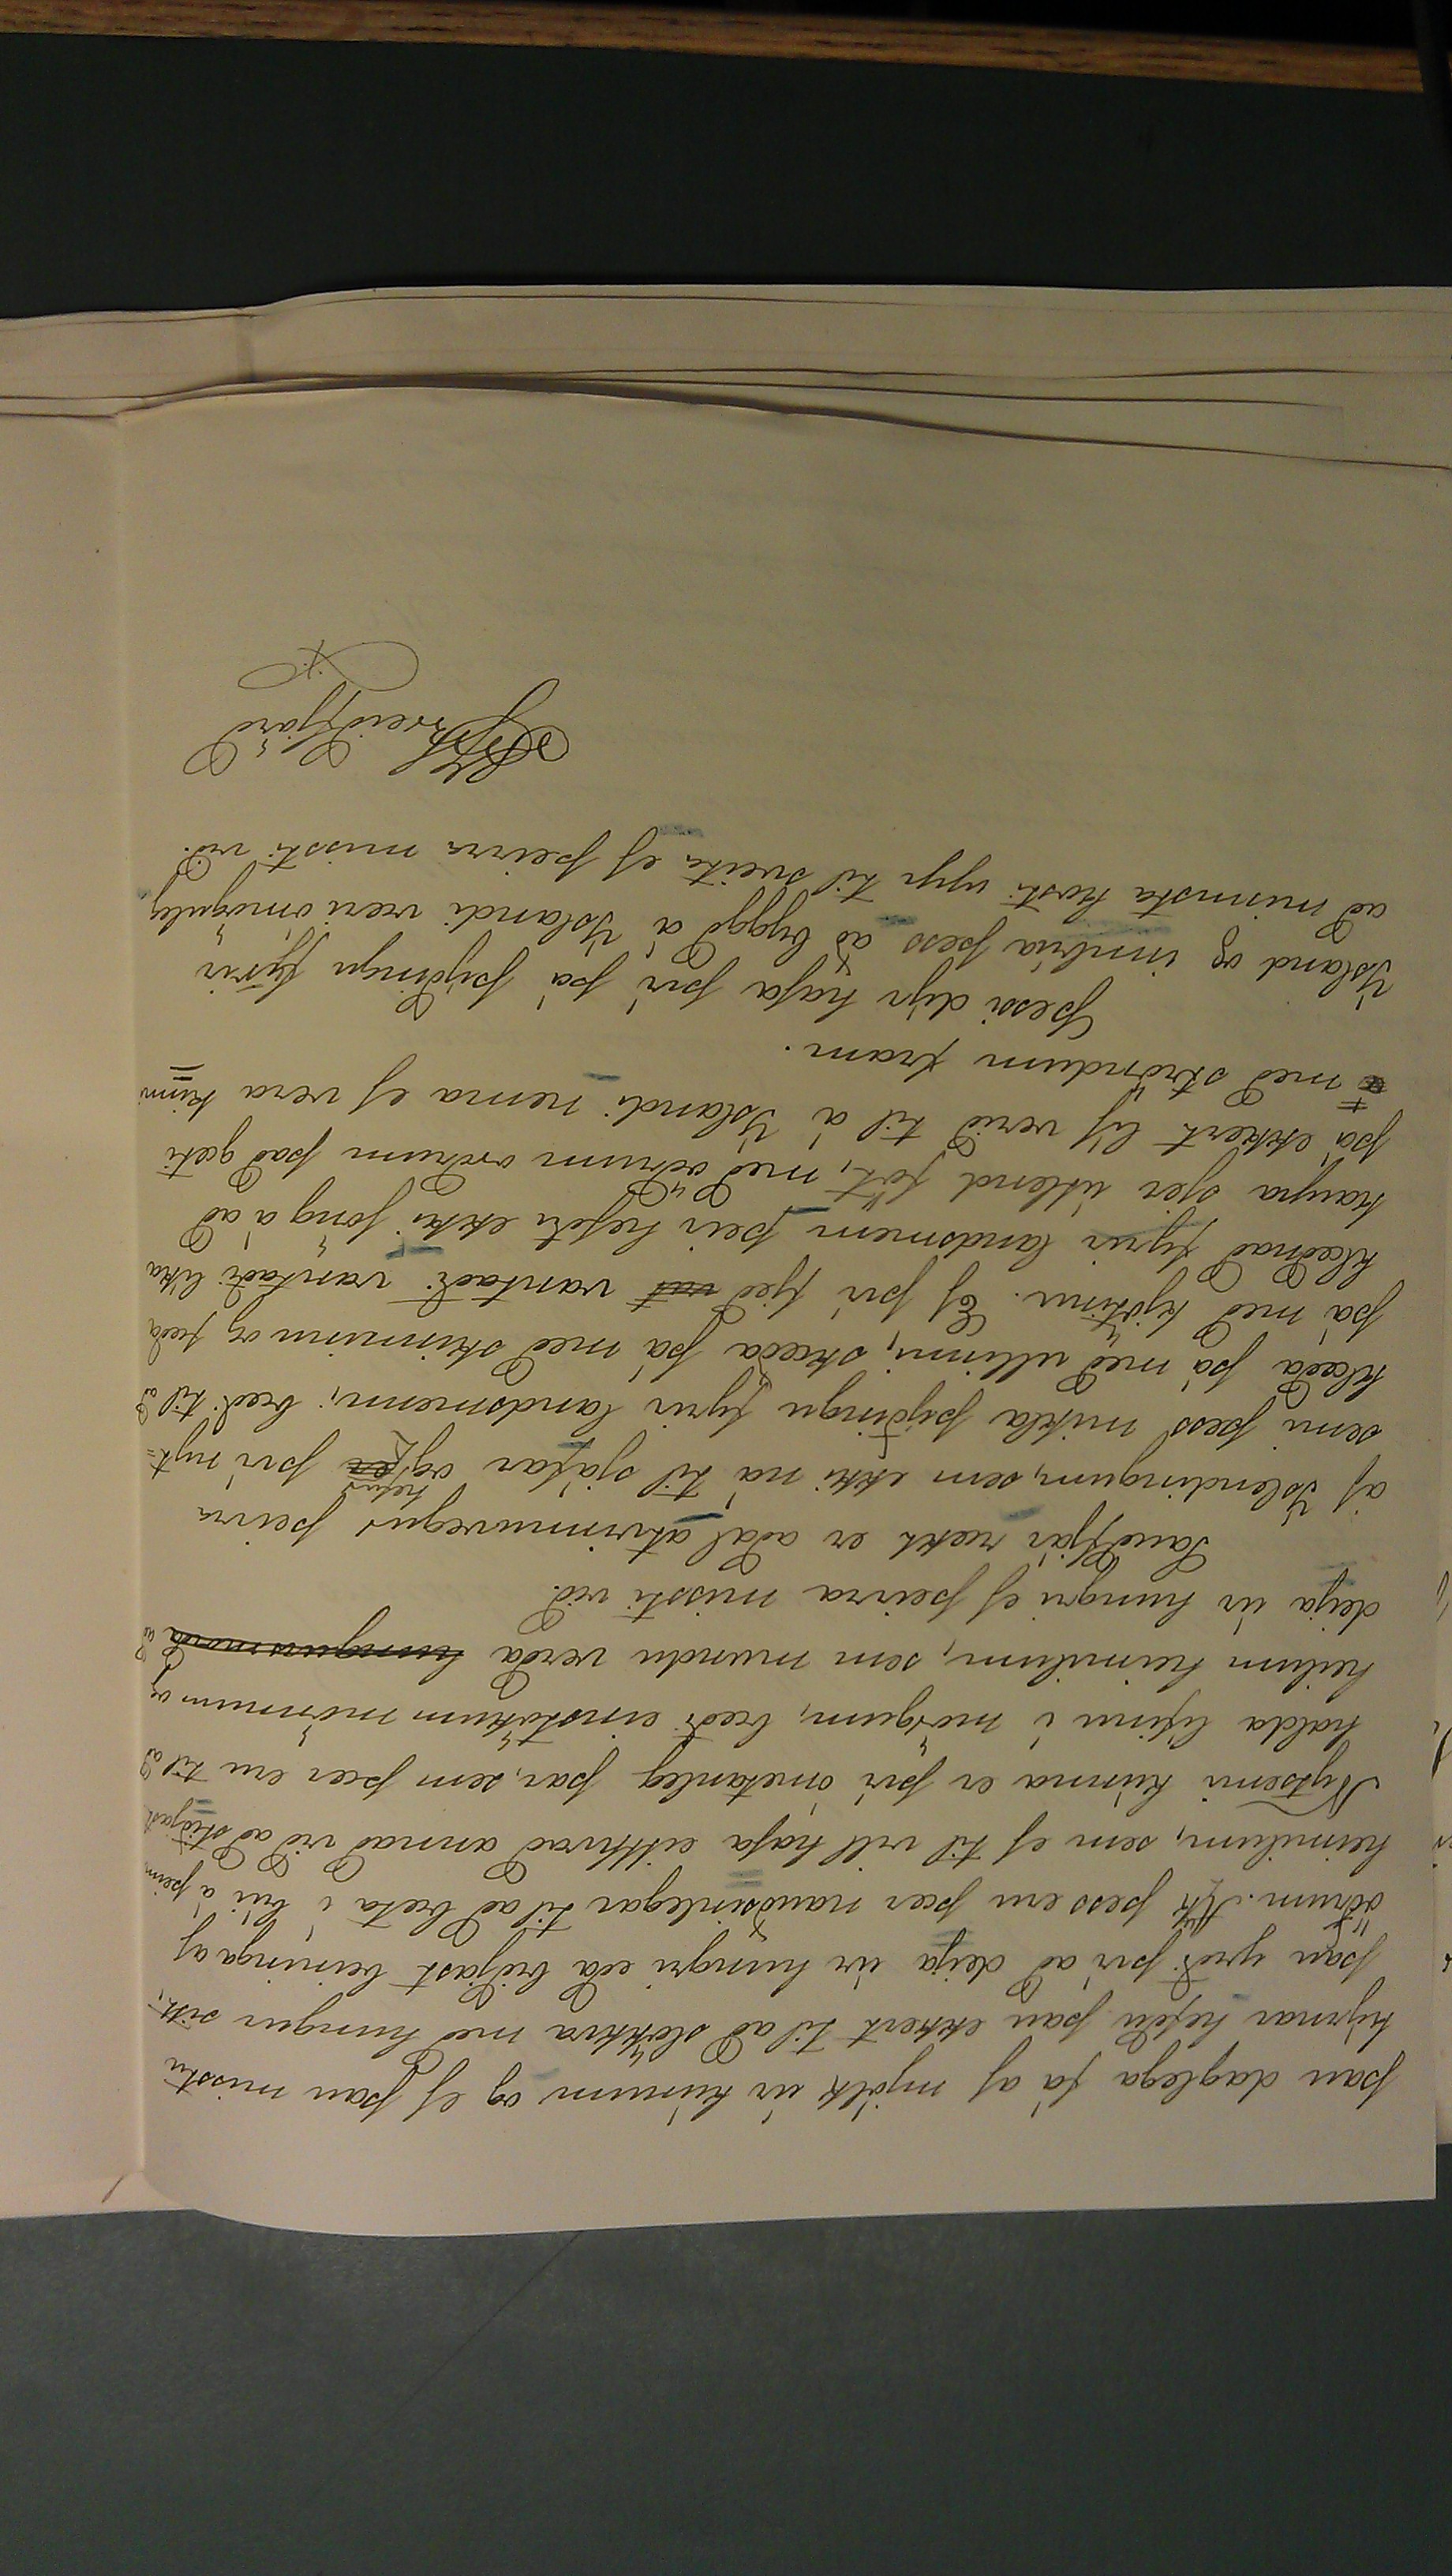 þau daglega fá af mjólk úr kúnum og ef þau misstu
kýrnar hefðu þau ekkert til að slökkva með hungur sitt,
þau yrði því að deyja úr hungri eða biðjast beininga af
öðrum. Auk þess eru þær nauðsinlegar til að bæta í bú á þeim
heimilum, sem ef til vill hafa eitthvað annað við að stiðjast
Nytsemi kúnna er því ómetanleg þar, sem þær eru til að
halda lífinu í mörgum, bæði einstökum mönnum og
heilum heimilum, sem mundu verða hungurmorða að
deyja úr hungri ef þeirra missti við.
Sauðfjár rækt er aðal atvinnuvegur þeirra
af Islendingum, sem ekki ná til sjáfar og er hefur því nyt-
semi þess mikla þýðingu fyrir landsmenn, bæði til að
klæða þá með ullinni, skæða þá með skinninu og fæða
þá með kjötinu. Ef því fjeð vat vantaði vantaði lika
klæðnað fyrir landsmenn þeir hefði ekki föng á að
kaupa sjer útlend föt, með öðrum orðum það gæti
þá ekkert líf verið til á Íslandi nema ef vera kinni
með ströndum fram.
Þessi dýr hafa því þá þýðingu fyrir
Ísland og innbúa þess að byggð á Íslandi væri ómöguleg
að minnsta kosti upp til sveita ef þeirra missti við.
Breiðfjörð